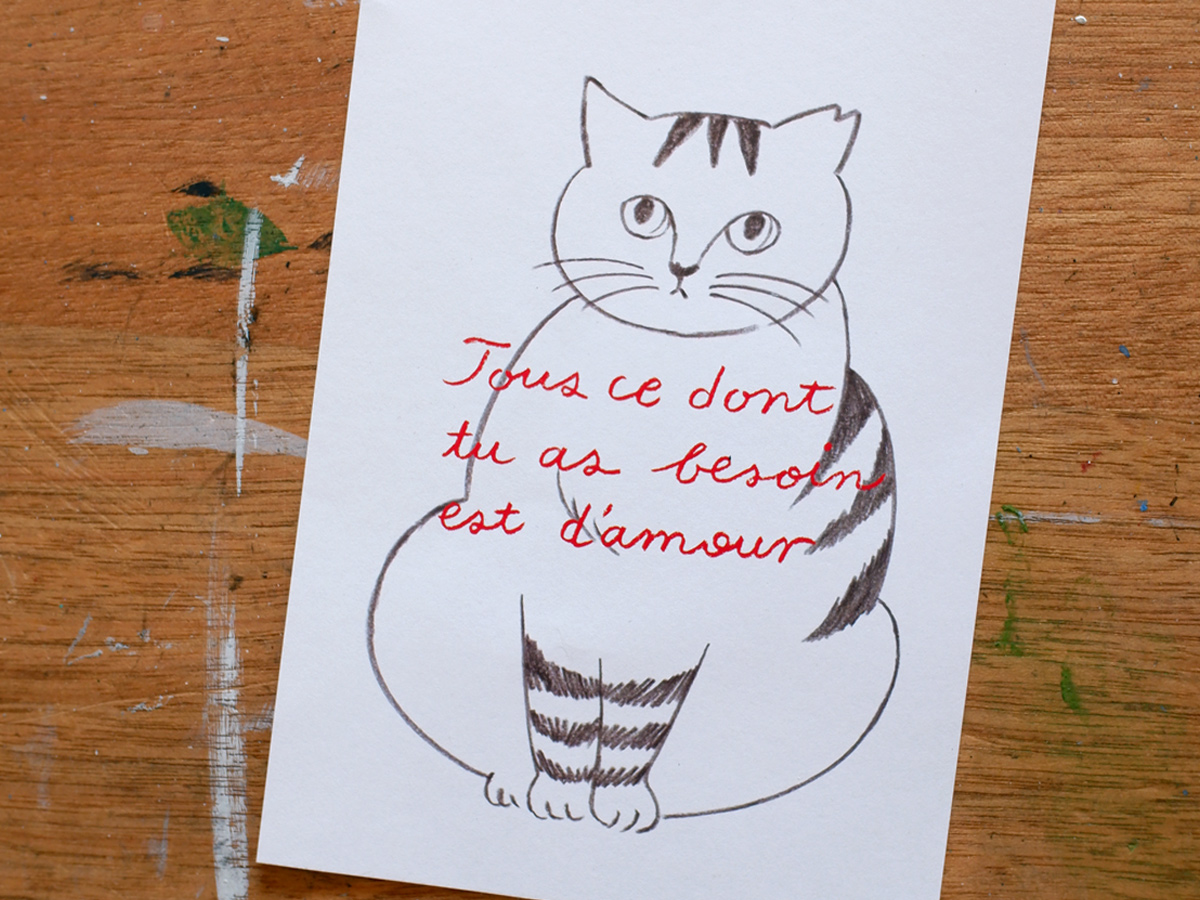 Tous ce dont
tu as besoin
est d'amour